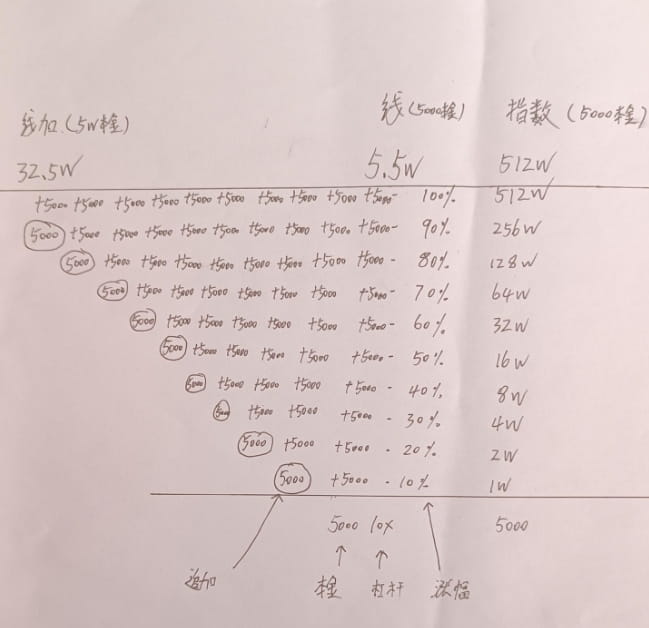 线加(5W本金) 线(5000本金) 指数(5000本金)
32.5W 5.5W 512W
+5000 +5000 +5000 +5000 +5000 +5000 +5000 +5000 +5000 +5000- 100% 512W
5000 +5000 +5000 +5000 +5000 +5000 +5000 +5000 +5000 +5000- 90% 256W
5000 +5000 +5000 +5000 +5000 +5000 +5000 +5000 +5000- 80% 128W
5000 +5000 +5000 +5000 +5000 +5000 +5000- 70% 64W
5000 +5000 +5000 +5000 +5000 +5000 +5000- 60% 32W
5000 +5000 +5000 +5000 +5000 +5000- 50% 16W
5000 +5000 +5000 +5000 +5000- 40% 8W
5000 +5000 +5000 +5000- 30% 4W
5000 +5000 +5000- 20% 2W
5000 +5000- 10% 1W
5000 10X 5000
追加 本金 杠杆 涨幅